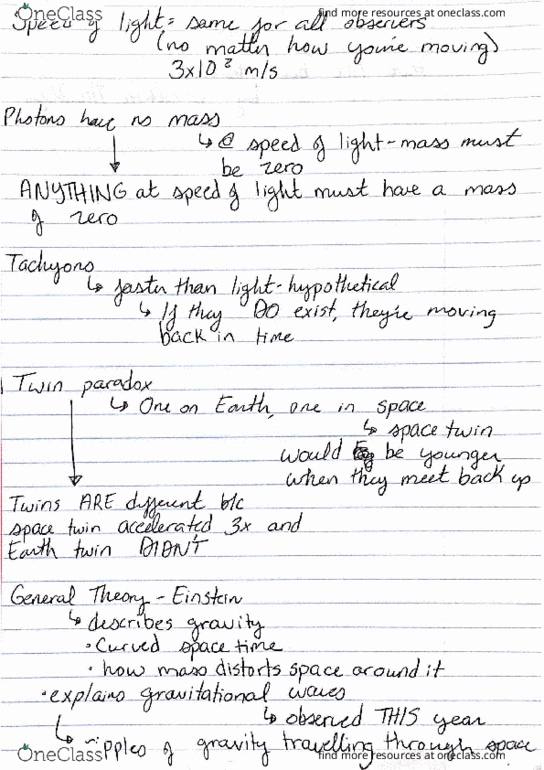 OneClass find more resources at oneclass.com
Speed of light = same for all observers
(no matter how you're moving)
3x10⁸ m/s
Photons have no mass
↳ @ speed of light - mass must
be zero
ANYTHING at speed of light must have a mass
of zero
Tachyons
↳ faster than light - hypothetical
↳ If they DO exist, they're moving
back in time
Twin paradox
↳ One on Earth, one in space
↳ space twin
would be younger
when they meet back up
Twins ARE different b/c
space twin accelerated 3x and
Earth twin DIDN'T
General Theory - Einstein
↳ describes gravity
• Curved space time
• how mass distorts space around it
• explains gravitational waves
↳ observed THIS year
↳ ripples of gravity travelling through space
OneClass find more resources at oneclass.com